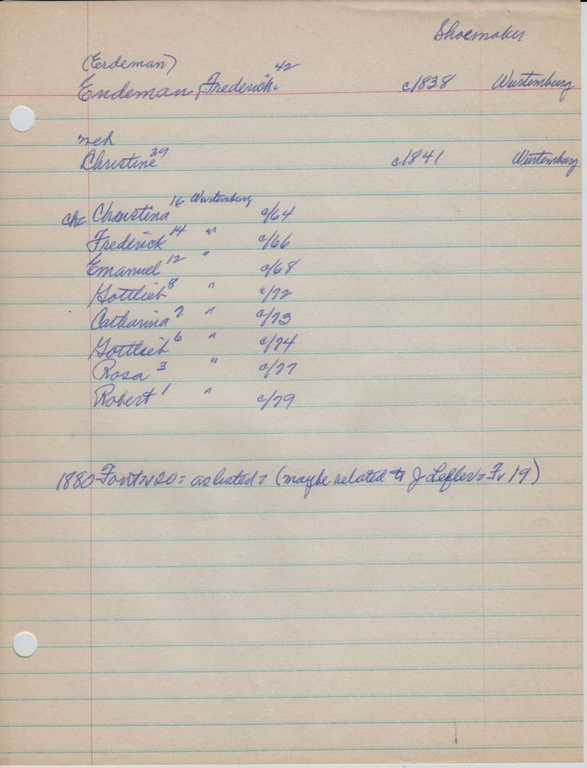 Shoemaker
(Erdeman)
Endeman Frederick 42 c1838 Wurtemburg
Christine 39 c1841 Wurtemburg
chr Christina 16 Wurtemburg c/64
Frederick 14 " c/66
Emanuel 12 " c/68
Gottlieb 8 " c/72
Catharina 7 " c/73
Gottlieb 6 " c/74
Rosa 3 " c/77
Robert 1 " c/79
1880 as listed = (maybe related to J Lefler = Fv 19)